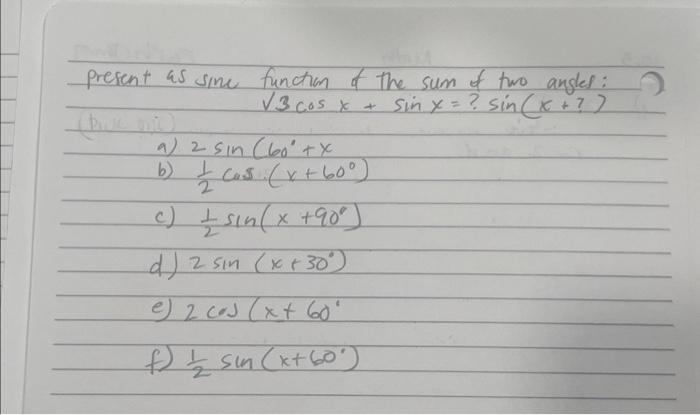 present as sine function of the sum of two angles:
√3 cos x + sin x = ? sin(x + ?)
a) 2 sin (60° + x
b) 1/2 cos (x + 60°)
c) 1/2 sin(x + 90°)
d) 2 sin (x + 30°)
e) 2 cos (x + 60°
f) 1/2 sin (x + 60°)